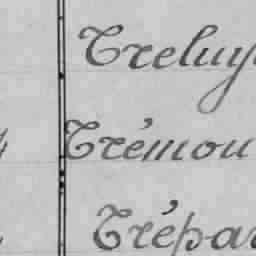 Treluy
Trémou
Trépar